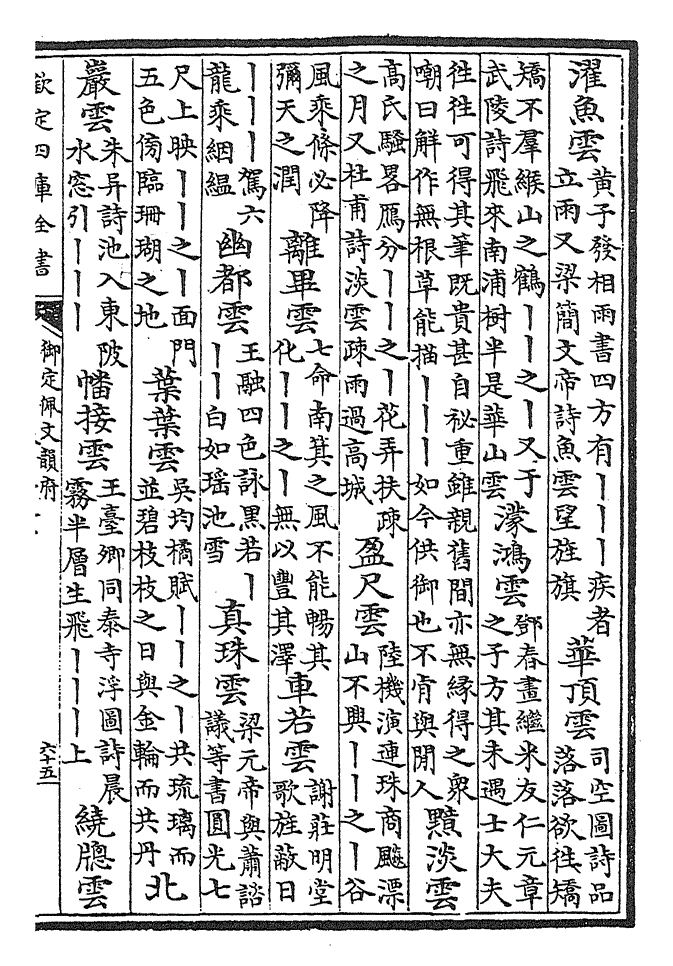 濯魚雲
黄子發相雨書四方有丨丨丨疾者
立雨又梁簡文帝詩魚雲望旌旗
華頂雲
司空圖詩品
落落欲徃矯
矯不羣緱山之鶴丨丨之丨又于
武陵詩飛來南浦樹半是華山雲
濛鴻雲
鄧春畫繼米友仁元章
之子方其未遇士大夫
徃徃可得其筆既貴甚自祕重雖親舊間亦無緣得之衆
嘲曰解作無根草能描丨丨丨如今供御也不肯與閒人
黲淡雲
高氏騷畧鴈分丨丨之丨花弄扶疎
之月又杜甫詩淡雲疎雨過高城
盈尺雲
陸機演連珠商飈漂
山不興丨丨之丨谷
風乘條必降
彌天之潤
離畢雲
七命南箕之風不能暢其
化丨丨之丨無以豐其澤
車若雲
謝莊明堂
歌旌蔽日
丨丨丨駕六
龍乘絪緼
幽都雲
王融四色詠黒若丨
丨丨白如瑶池雪
真珠雲
梁元帝與蕭諮
議等書圓光七
尺上映丨丨之丨面門
五色傍臨珊瑚之地
葉葉雲
吴均橘賦丨丨之丨共琉璃而
並碧枝枝之日與金輪而共丹
北
巖雲
朱异詩池入東陂
水窓引丨丨丨
幡接雲
王臺卿同泰寺浮圖詩晨
霧半層生飛丨丨丨上
繞牕雲
欽定四庫全書
御定佩文韻府
六十五